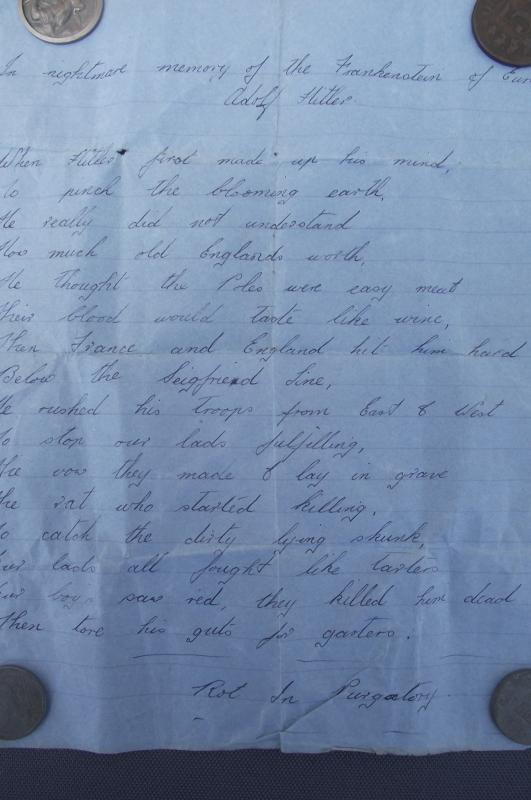 In nightmare memory of the Frankenstein of Eur
Adolf Hitler.
When Hitler first made up his mind,
To pinch the blooming earth,
He really did not understand
How much old Englands worth,
He thought the Poles were easy meat
Their blood would taste like wine,
Then France and England hit him hard
Below the Seigfriend Line,
He rushed his troops from East & West
To stop our lads fulfilling,
The vow they made & lay in grave
The rat who started killing.
To catch the dirty lying skunk,
Our lads all fought like tarters
Our boys saw red, they killed him dead
Then tore his guts for garters.
Rot In Purgatory.